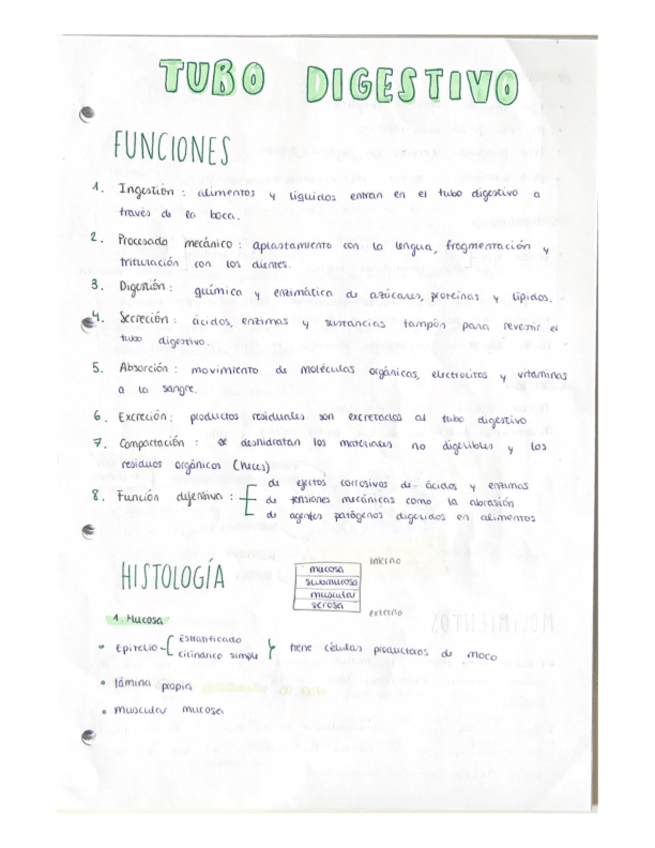 TUBO DIGESTIVO
FUNCIONES
1. Ingestión : alimentos y líquidos entran en el tubo digestivo a
través de la boca.
2. Procesado mecánico : aplastamiento con la lengua, fragmentación y
trituración con los dientes.
3. Digestión : química y enzimática de azúcares, proteínas y lípidos.
4. Secreción : ácidos, enzimas y sustancias tampón para revestir el
tubo digestivo.
5. Absorción : movimiento de moléculas orgánicas, electrolitos y vitaminas
a la sangre.
6. Excreción : productos residuales son excretados al tubo digestivo
7. Compactación : se deshidratan los materiales no digeribles y los
residuos orgánicos (heces)
8. Función defensiva : de efectos corrosivos de ácidos y enzimas
de tensiones mecánicas como la abrasión
de agentes patógenos digeridos en alimentos
HISTOLOGÍA
interno
mucosa
submucosa
muscular
serosa
externo
1. Mucosa
• Epitelio Estratificado
cilíndrico simple tiene células productoras de moco
• lámina propia
• muscular mucosa
MOVIMIENTOS